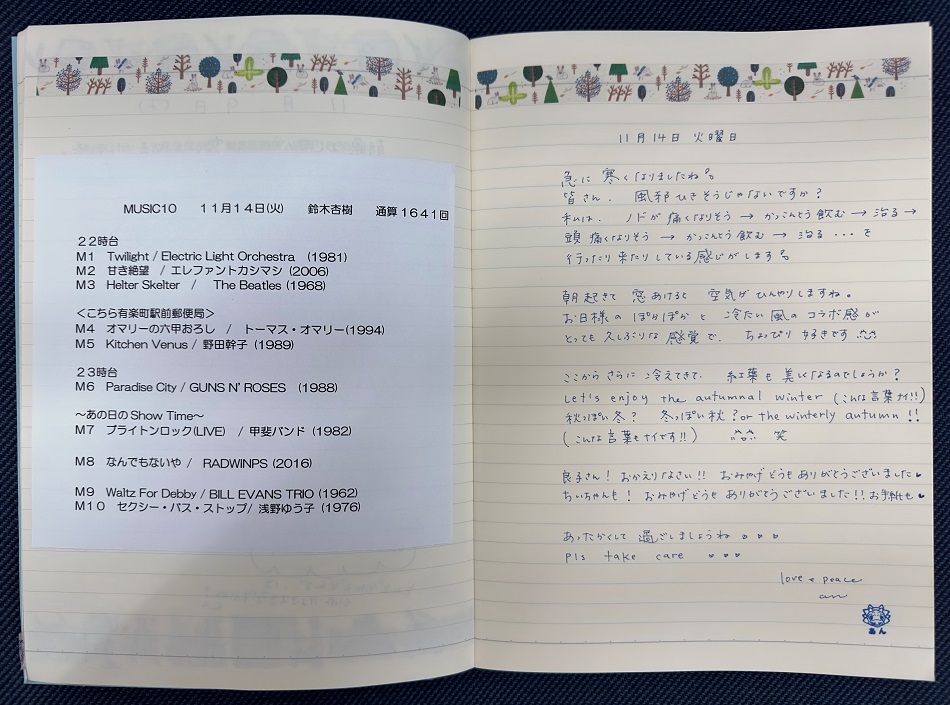 MUSIC10 11月14日(火) 鈴木杏樹 通算1641回
22時台
M1 Twilight / Electric Light Orchestra (1981)
M2 甘き絶望 / エレファントカシマシ (2006)
M3 Helter Skelter / The Beatles (1968)
＜こちら有楽町駅前郵便局＞
M4 オマリーの六甲おろし / トーマス・オマリー(1994)
M5 Kitchen Venus / 野田幹子 (1989)
23時台
M6 Paradise City / GUNS N' ROSES (1988)
～あの日のShow Time～
M7 ブライトンロック(LIVE) / 甲斐バンド (1982)
M8 なんでもないや / RADWINPS (2016)
M9 Waltz For Debby / BILL EVANS TRIO (1962)
M10 セクシー・バス・ストップ/ 浅野ゆう子 (1976)
11月14日 火曜日
急に 寒くなりましたね。
皆さん、 風邪ひきそうじゃないですか？
私は、 ノドが痛くなりそう → かっこんとう飲む → 治る →
頭痛くなりそう → かっこんとう飲む → 治る ・・・を
行ったり来たりしている感じがします。
朝起きて 窓あけると 空気がひんやりしますね。
お日様の ぽかぽかと 冷たい風のコラボ感が
とっても久しぶりな 感覚で、 ちょっぴり 好きです
ここからさらに 冷えてきて、 紅葉も 美しくなるのでしょうか？
Let's enjoy the autumnal winter (こんな言葉ナイ!!)
秋っぽい冬？ 冬っぽい秋？or the winterly autumn !!
(こんな言葉もナイです!!) 笑
良子さん！ おかえりなさい!! おみやげどうもありがとうございました♥
ちいちゃんも！ おみやげどうも ありがとうございました!! お手紙も♥
あったかくして 過ごしましょうね
pls take care
love & peace
an
あん